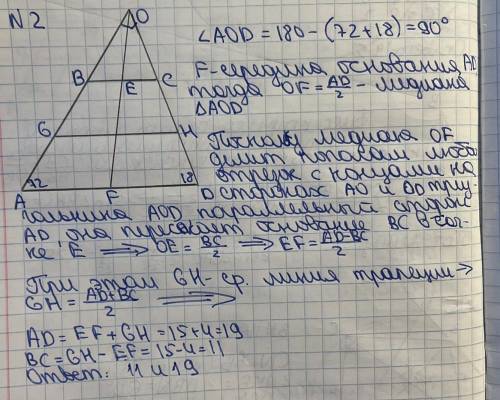 N2
O
∠AOD = 180 - (72+18) = 90°
B
C
E
F - середина основания AD,
тогда OF = AD/2 - медиана
△AOD
G
H
72
18
A
F
D
Поскольку медиана OF
делит пополам любой
отрезок с концами на
сторонах AO и OD треу-
гольника AOD параллельный стороне
AD, она пересекает основание BC в точ-
ке E ⟹ OE = BC/2 ⟹ EF = AD-BC/2
При этом GH - ср. линия трапеции →
GH = AD+BC/2 ⟹
AD = EF + GH = 15+4=19
BC = GH - EF = 15-4=11
Ответ: 11 и 19